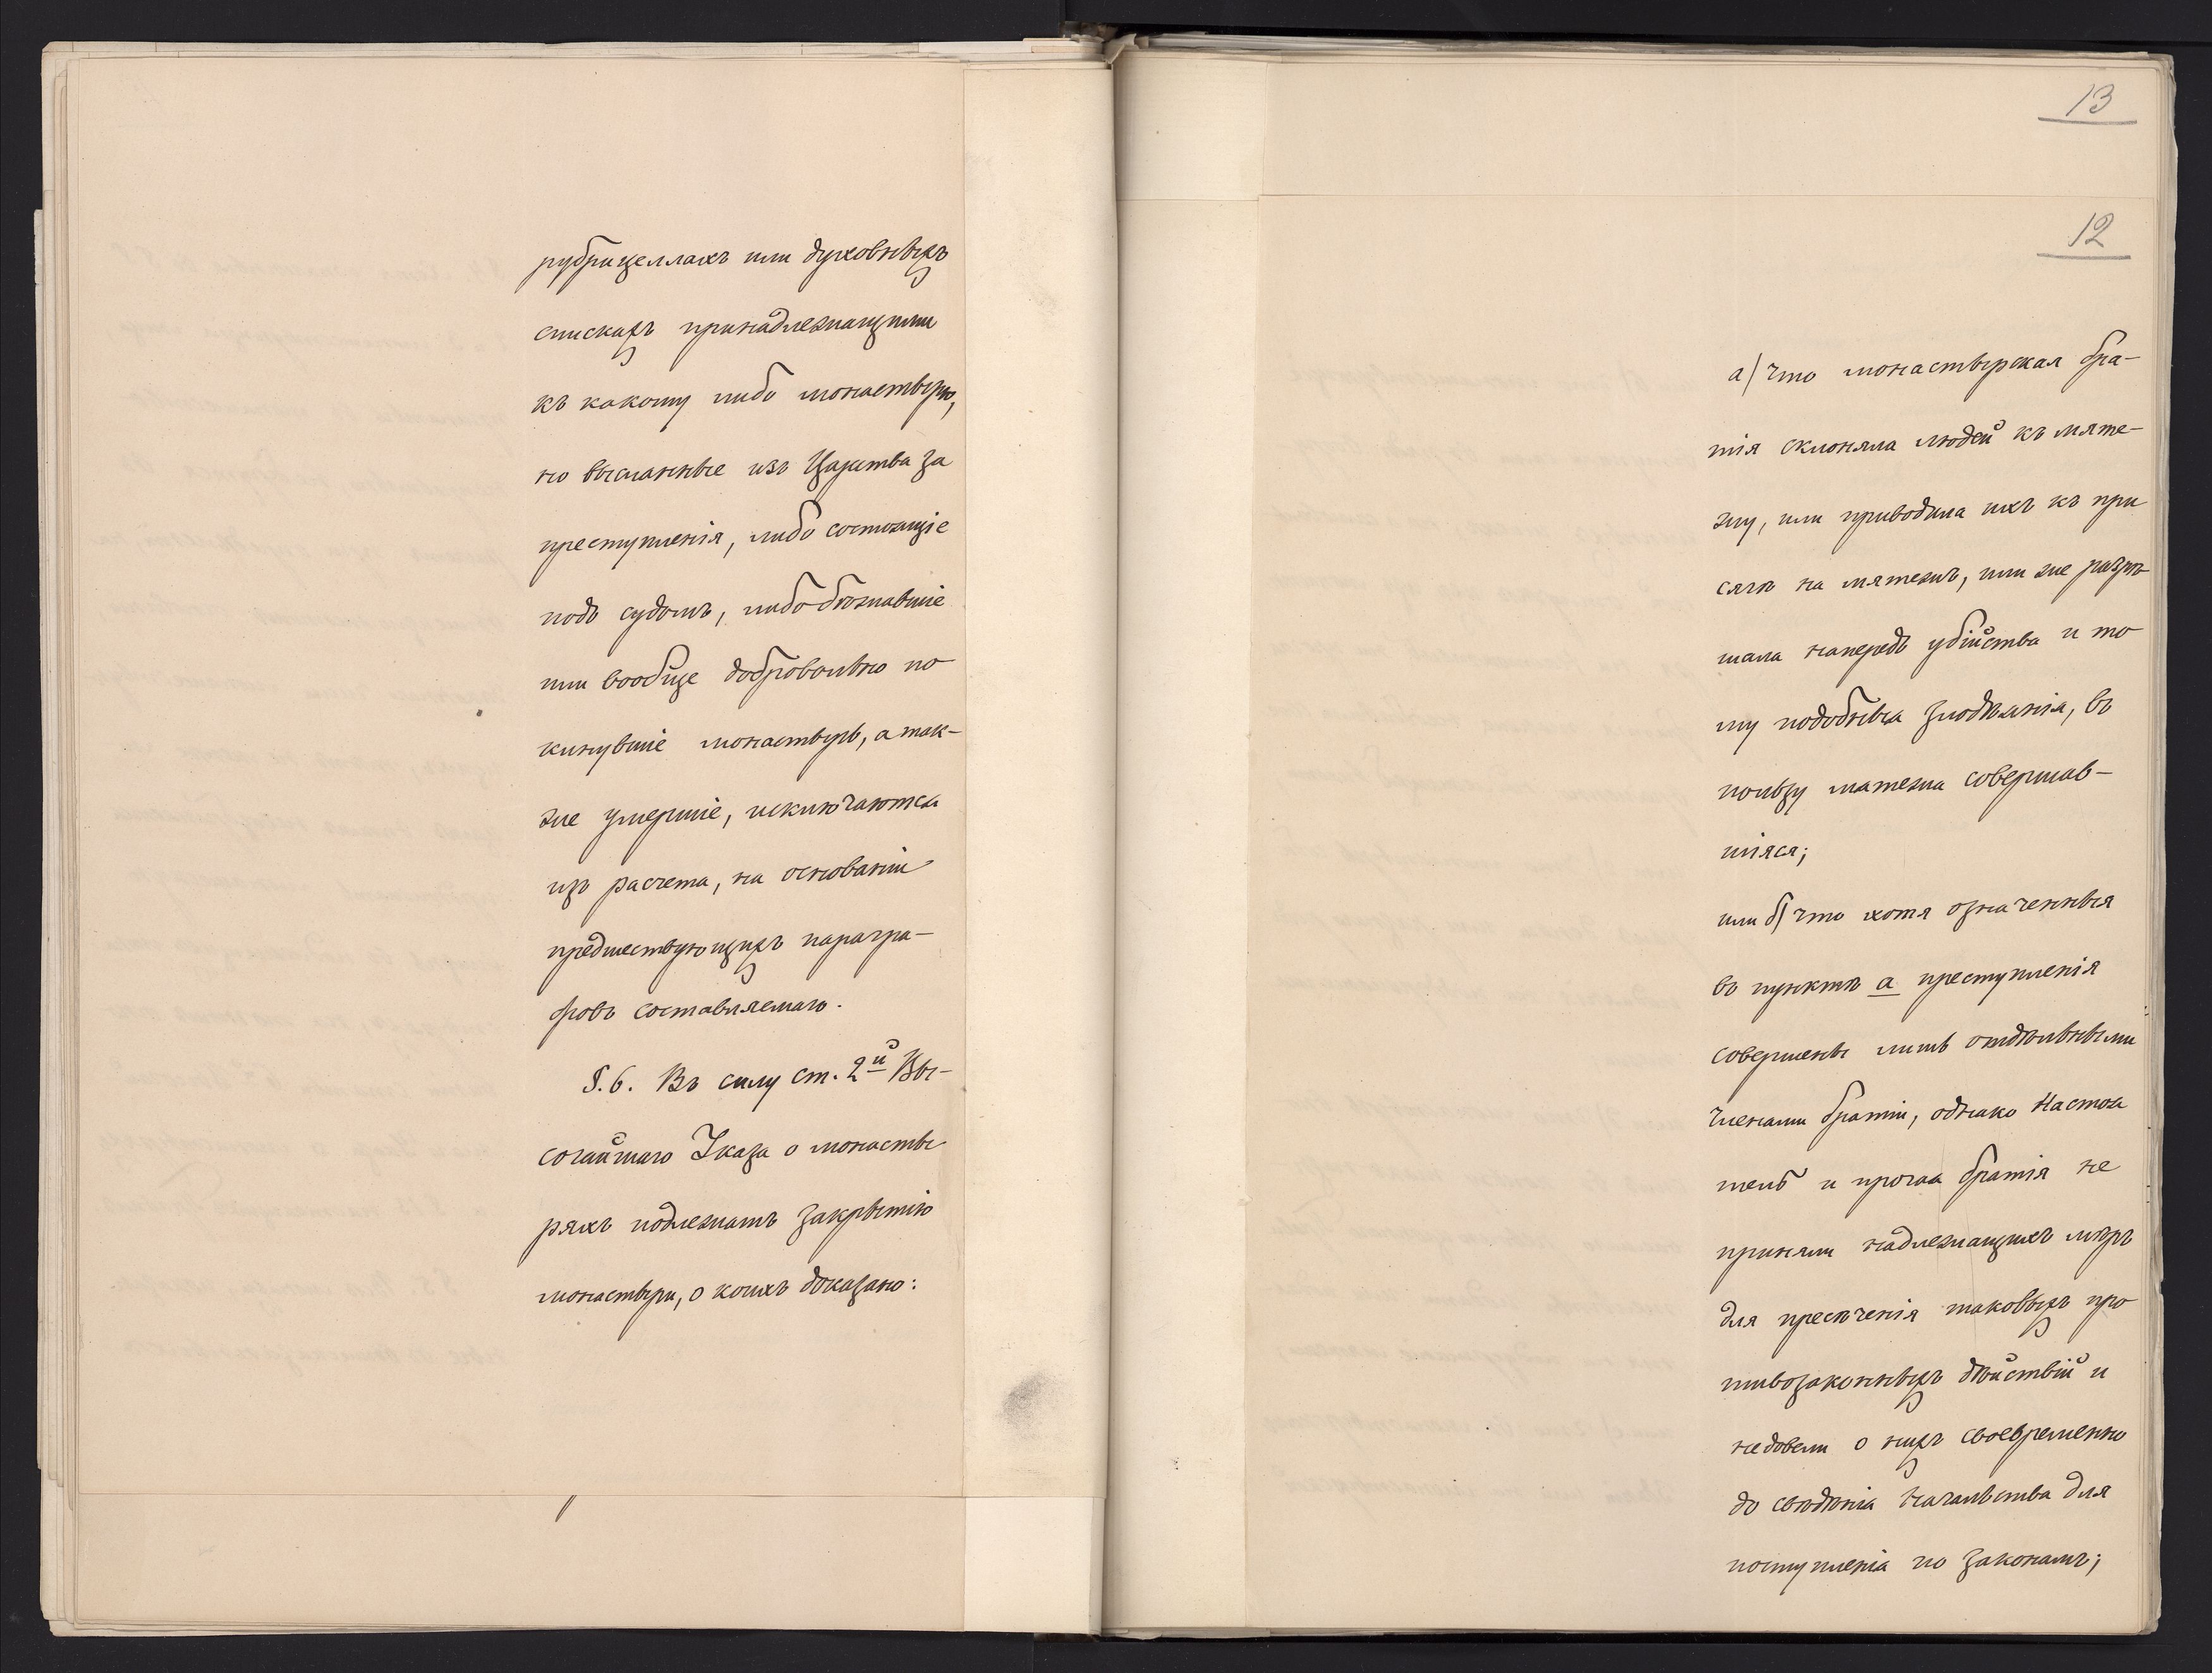 рубрицеллахъ или духовныхъ
спискахъ принадлежащими
къ какому либо монастырю,
но высланные изъ Царства за
преступленія, либо состоящіе
подъ судомъ, либо бѣжавшіе
или вообще добровольно по
кинувшіе монастырь, а так-
же умершіе, исключаются
изъ расчета, на основаніи
предшествующихъ парагра-
фовъ составляемаго.
§. 6. Въ силу ст. 2й Вы-
сочайшаго Указа о монасты
ряхъ подлежатъ закрытію
монастыри, о коихъ доказано:
13
12
а) что монастырская бра-
тія склоняла людей къ мяте-
жу, или приводила ихъ къ при
сягѣ на мятежъ, или же разрѣ
шала напередъ убійства и то
му подобныя злодѣянія, въ
пользу мятежа совершав-
шіяся;
или б) что хотя означенныя
въ пунктѣ а преступленія
совершены лишь отдѣльными
членами братіи, однако Настоя
тель и прочая братія не
приняли надлежащихъ мѣръ
для пресѣченія таковыхъ про
тивозаконныхъ дѣйствій и
недовели о нихъ своевременно
до свѣдѣнія Начальства для
поступленія по законамъ;